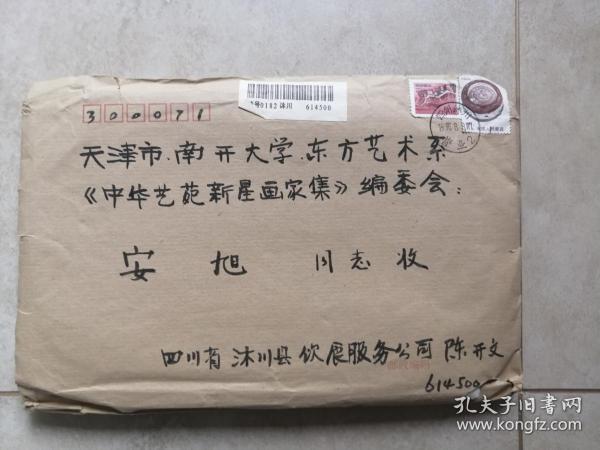 0182 沐川 614500
300071
天津市.南开大学.东方艺术系
《中华艺苑新星画家集》编委会:
安旭 同志收
四川省沐川县饮展服务公司陈开文
614500
孔夫子旧书网
www.kongfz.com